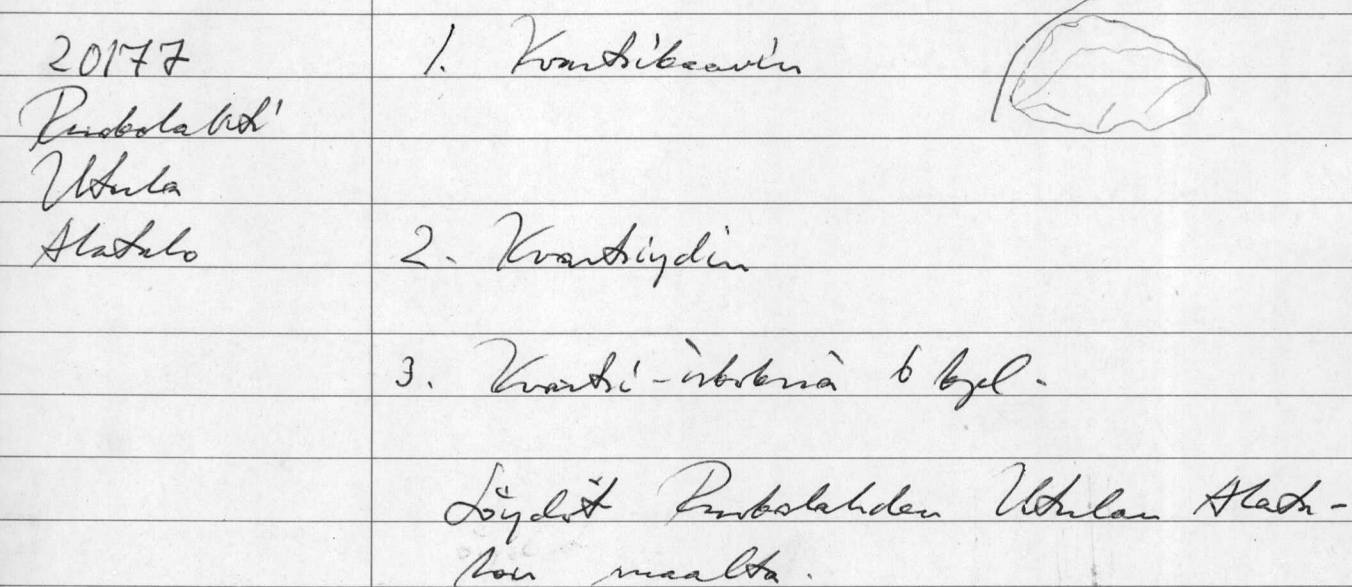 20177
Ruokolahti
Utula
Alatalo
1. Kvartsikaavin
2. Kvartsiydin
3. Kvartsi-iskoksia 6 kpl.
Löydöt Ruokolahden Utulan Alata-
lon maalta.